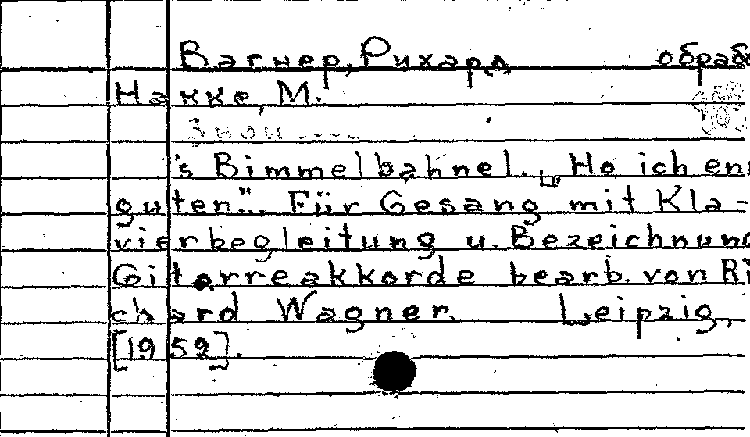 Вагнер, Рихард обраб
Накке, М.
's Bimmelbahnel. „Ho ich en
guten". Für Gesang mit Kla-
vierbegleitung u. Bezeichnun
Gitarreakkorde bearb. von Ri
chard Wagner. Leipzig,
[1959].